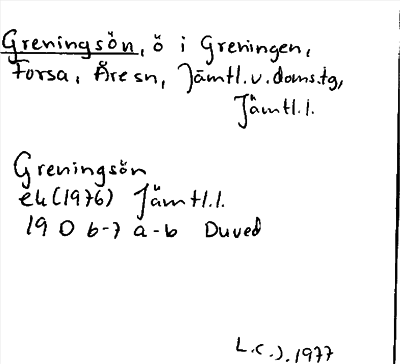 Greningsön, ö i Greningen,
Forsa, Åre sn, Jämtl.v.doms.tg,
Jämtl.l.
Greningsön
ek(1976) Jämtl.l.
19 D 6-7 a-b Duved
L.C.J. 1977